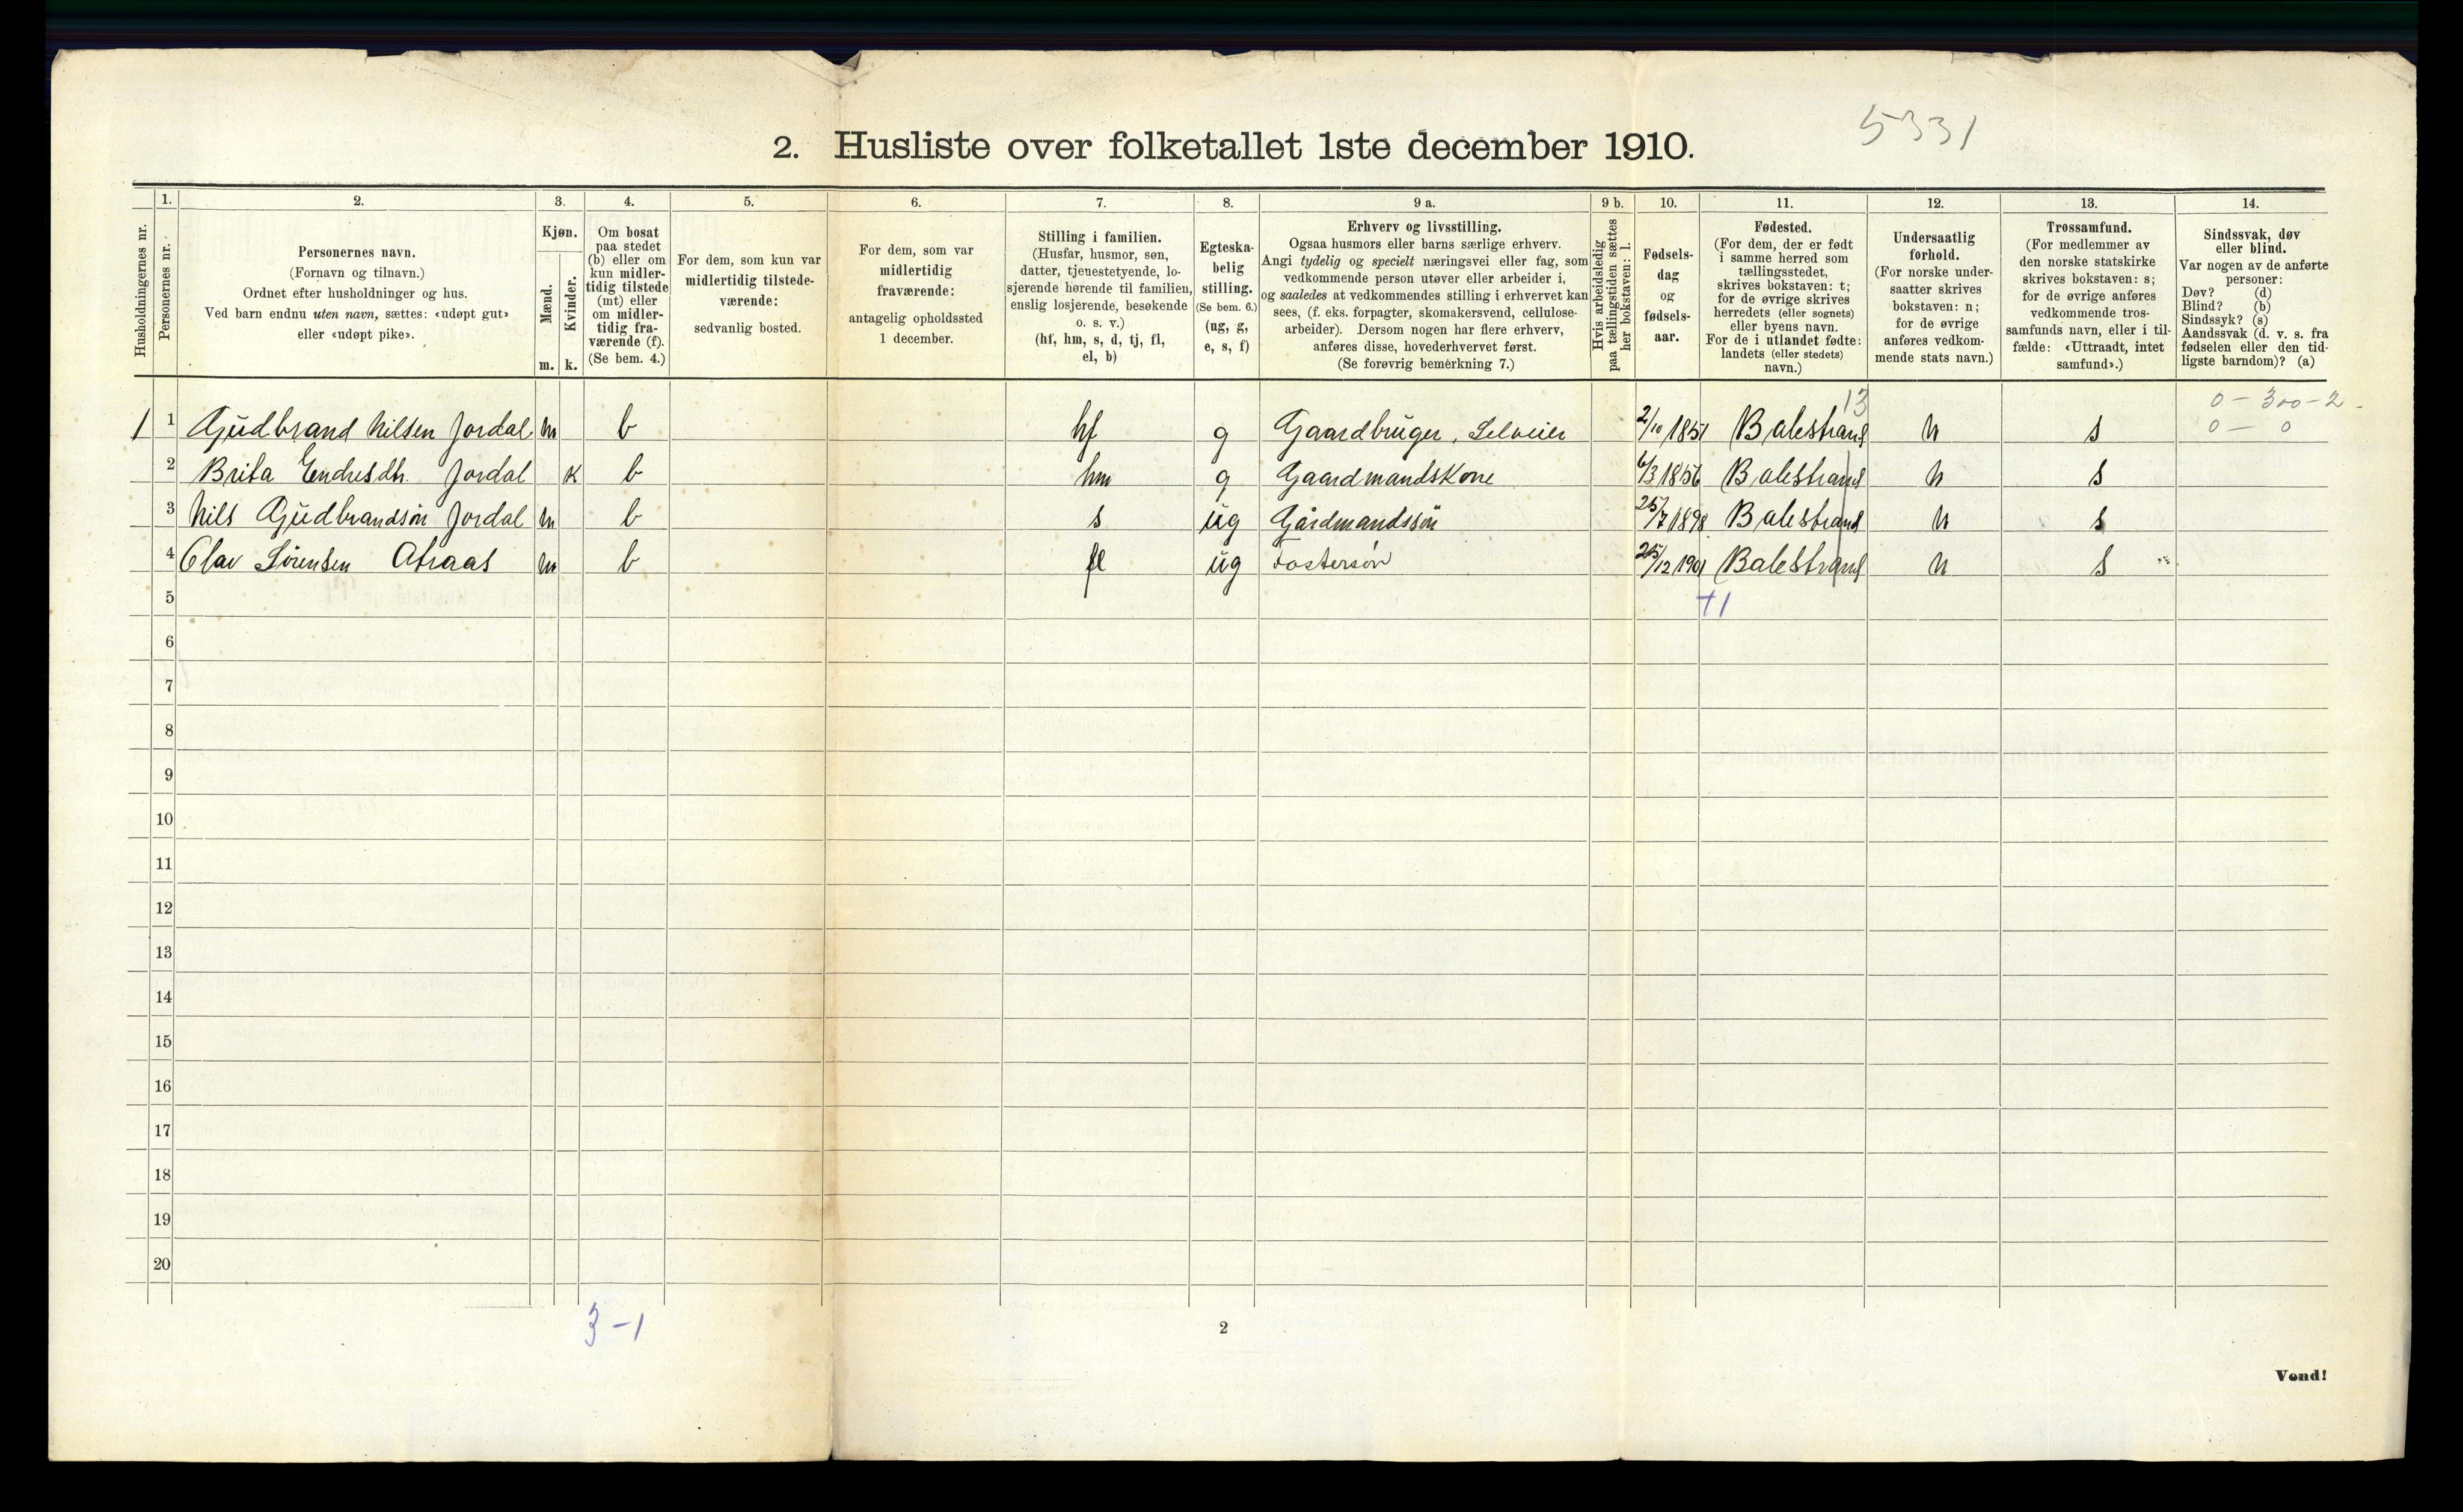 5331
2. Husliste over folketallet 1ste december 1910.
1. 2. 3. 4. 5. 6. 7. 8. 9 a. 9 b. 10. 11. 12. 13. 14.
Husholdningernes nr.
Personernes nr.
Personernes navn.
(Fornavn og tilnavn.)
Ordnet efter husholdninger og hus.
Ved barn endnu uten navn, sættes: «udøpt gut»
eller «udøpt pike».
Kjøn.
Mænd.
Kvinder.
m. k.
Om bosat
paa stedet
(b) eller om
kun midler-
tidig tilstede
(mt) eller
om midler-
tidig fra-
værende (f).
(Se bem. 4.)
For dem, som kun var
midlertidig tilstede-
værende:
sedvanlig bosted.
For dem, som var
midlertidig
fraværende:
antagelig opholdssted
1 december.
Stilling i familien.
(Husfar, husmor, søn,
datter, tjenestetyende, lo-
sjerende hørende til familien,
enslig losjerende, besøkende
o. s. v.)
(hf, hm, s, d, tj, fl,
el, b)
Egteska-
belig
stilling.
(Se bem. 6.)
(ug, g,
e, s, f)
Erhverv og livsstilling.
Ogsaa husmors eller barns særlige erhverv.
Angi tydelig og specielt næringsvei eller fag, som
vedkommende person utøver eller arbeider i,
og saaledes at vedkommendes stilling i erhvervet kan
sees, (f. eks. forpagter, skomakersvend, cellulose-
arbeider). Dersom nogen har flere erhverv,
anføres disse, hovederhvervet først.
(Se forøvrig bemerkning 7.)
Hvis arbeidsledig
paa tællingstiden sættes
her bokstaven: l.
Fødsels-
dag
og
fødsels-
aar.
Fødested.
(For dem, der er født
i samme herred som
tællingsstedet,
skrives bokstaven: t;
for de øvrige skrives
herredets (eller sognets)
eller byens navn.
For de i utlandet fødte:
landets (eller stedets)
navn.)
Undersaatlig
forhold.
(For norske under-
saatter skrives
bokstaven: n;
for de øvrige
anføres vedkom-
mende stats navn.)
Trossamfund.
(For medlemmer av
den norske statskirke
skrives bokstaven: s;
for de øvrige anføres
vedkommende tros-
samfunds navn, eller i til-
fælde: «Uttraadt, intet
samfund».)
Sindssvak, døv
eller blind.
Var nogen av de anførte
personer:
Døv? (d)
Blind? (b)
Sindssyk? (s)
Aandssvak (d. v. s. fra
fødselen eller den tid-
ligste barndom)? (a)
13 0 - 300 - 2 -
1 1 Gudbrand Nilsen Jordal m b hf g Gaardbruger, Selveier 2/10 1851 Balestrand n s 0 - 0
2 Brita Endresdtr. Jordal k b hm g Gaardmandskone 6/3 1856 Balestrand n s
3 Nils Gudbrandsøn Jordal m b s ug Gårdmandssøn 25/7 1898 Balestrand n s
4 Olav Sørensen m b fl ug Fostersøn 25/12 1901 Balestrand n s
5 +1
6
7
8
9
10
11
12
13
14
15
16
17
18
19
20
3 - 1
2
Vend!